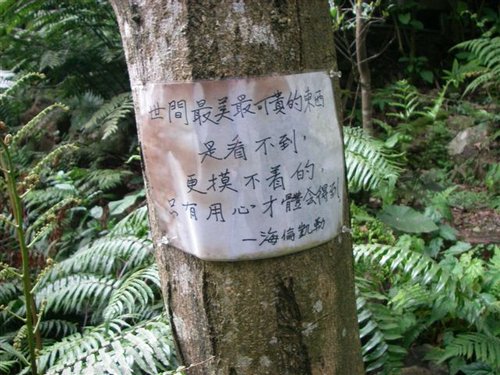 世間最美最可貴的東西
是看不到,
更摸不着的,
只有用心才體會得到
—海倫凱勒